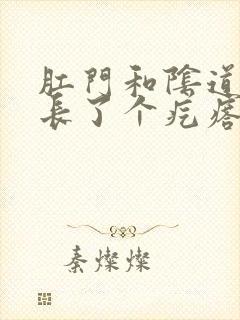 肛門和陰道
長了个疙瘩
秦燦燦